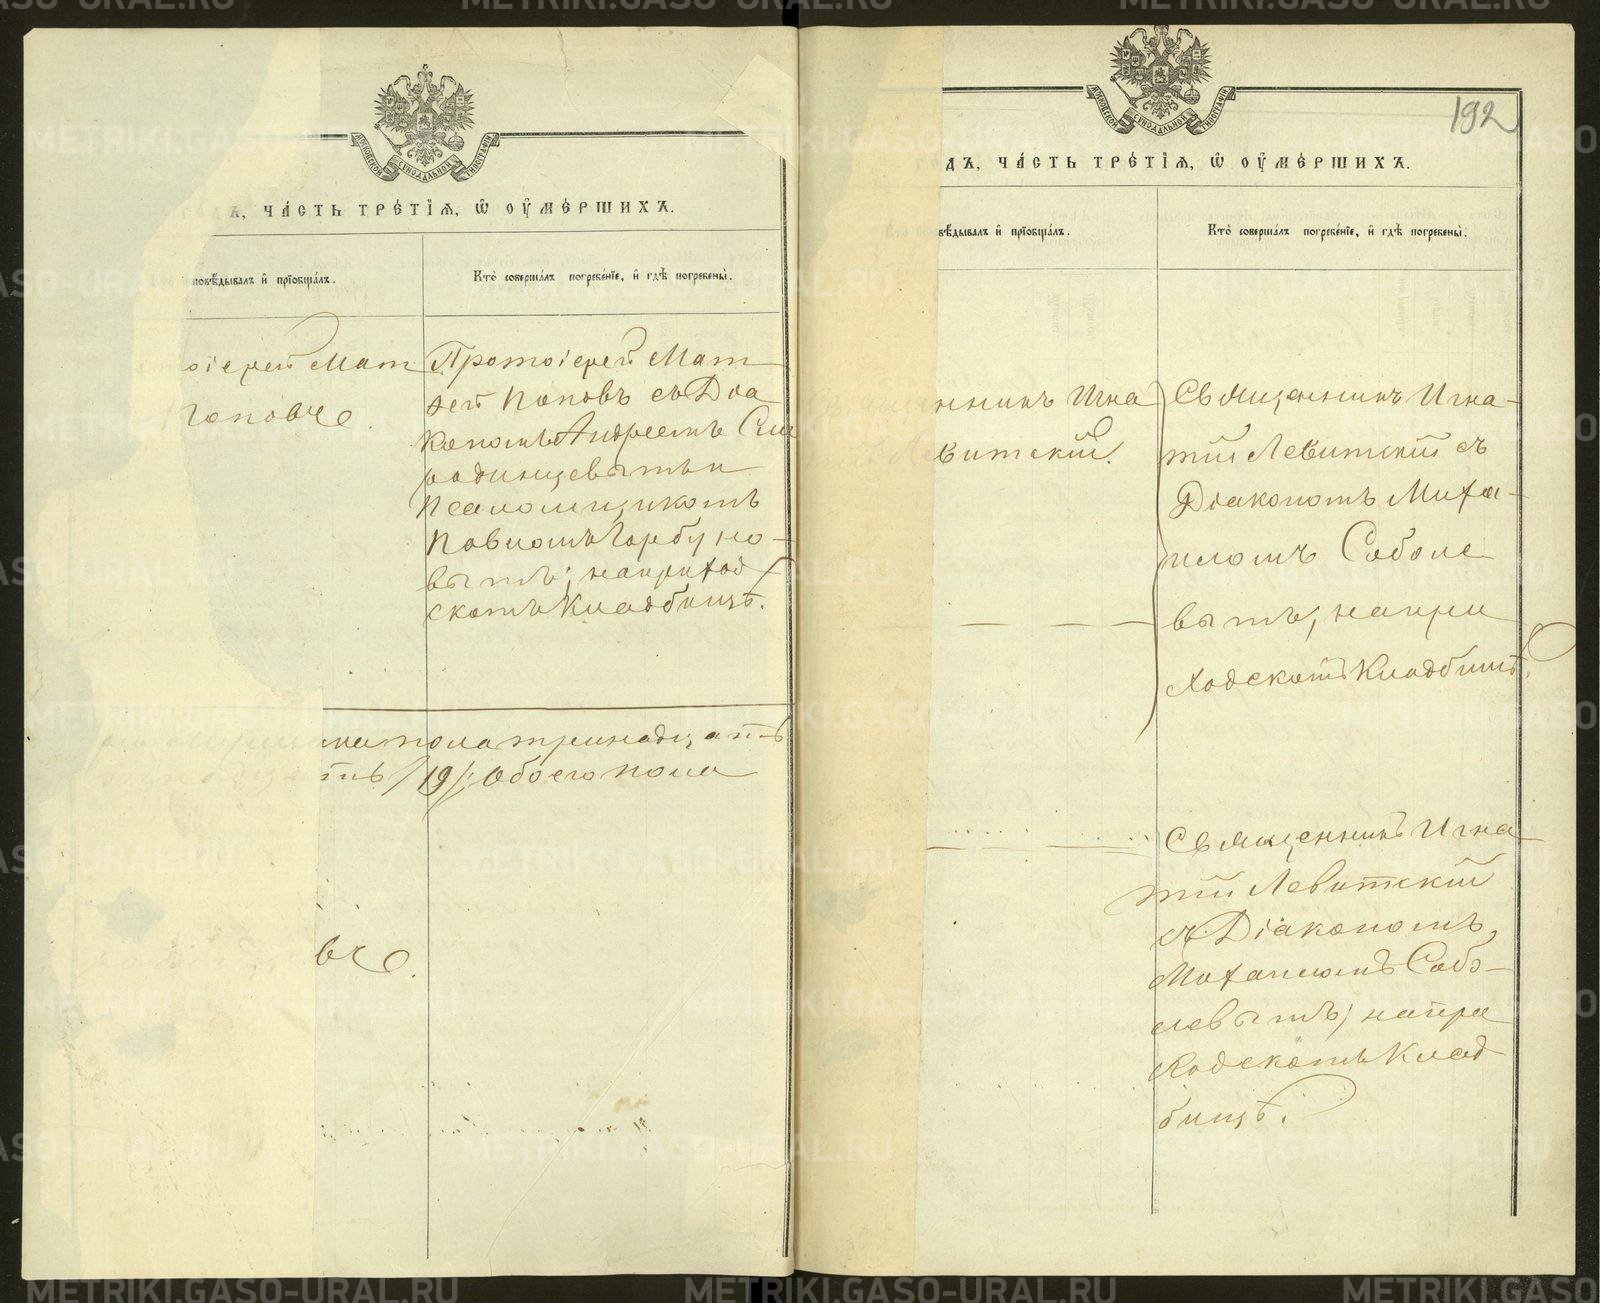 МОСКОВСКОЙ СУНОДАЛЬНОЙ ТИПОГРАФІИ
Ъ, ЧА́СТЬ ТРЕ́ТІѦ, Ѡ҆ ОУ҆МЕ́РШИХЪ.
повѣ́дывалъ и҆ прїѡбща́лъ.
Кто̀ соверша́лъ погребе́нїе, и҆ гдѣ̀ погребены̀.
оіерей Мат
Поповъ.
Протоіерей Мат
ѳей Поповъ съ Діа
кономъ Андреемъ Сми
родинцевымъ и
Псаломщикомъ
Павломъ Горбуно-
вымъ; на приход
скомъ Кладбищѣ.
пола тринадцать
ть /19/; обоего пола
въ.
192
МОСКОВСКОЙ СУНОДАЛЬНОЙ ТИПОГРАФІИ
ДЪ, ЧА́СТЬ ТРЕ́ТІѦ, Ѡ҆ ОУ҆МЕ́РШИХЪ.
вѣ́дывалъ и҆ прїѡбща́лъ.
Кто̀ соверша́лъ погребе́нїе, и҆ гдѣ̀ погребены̀.
нникъ Игна
витскій.
Священникъ Игна-
тій Левитскій съ
Діакономъ Миха-
иломъ Соболе
вымъ, на при
ходскомъ Кладбищѣ.
Священникъ Игна
тій Левитскій
съ Діакономъ
Михаиломъ Собо-
левымъ; на при
ходскомъ Клад
бищѣ.
METRIKI.GASO-URAL.RU